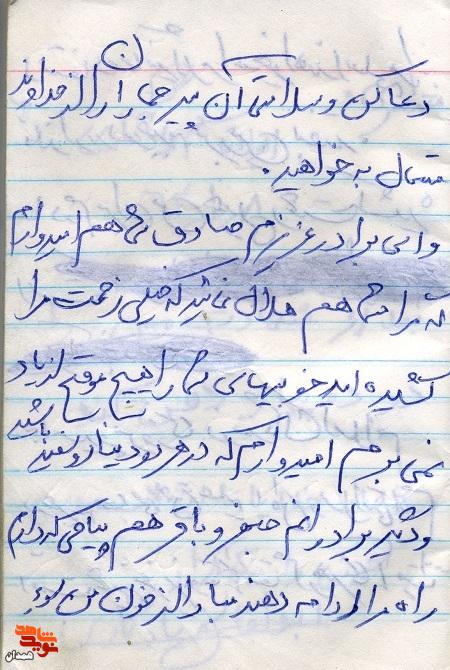 دعا کن و سلامتی آن پیر جماران را از خداوند
متعال به خواهید.
و اسی برادر عزیزم صادق شما هم امیدوارم
که مرا شما هم حلال نمائید که خیلی زحمت مرا
کشیده اید خوبیهای شما را هیچ موقع از یاد
نمی برم امیدوارم که در هر دو دنیا رو سفید باشید
و دیگر برادرانم جعفر و باقر هم پیامی که دارم
راه مرا ادامه دهند مبادا از خون من
نوید شاهد
همدان